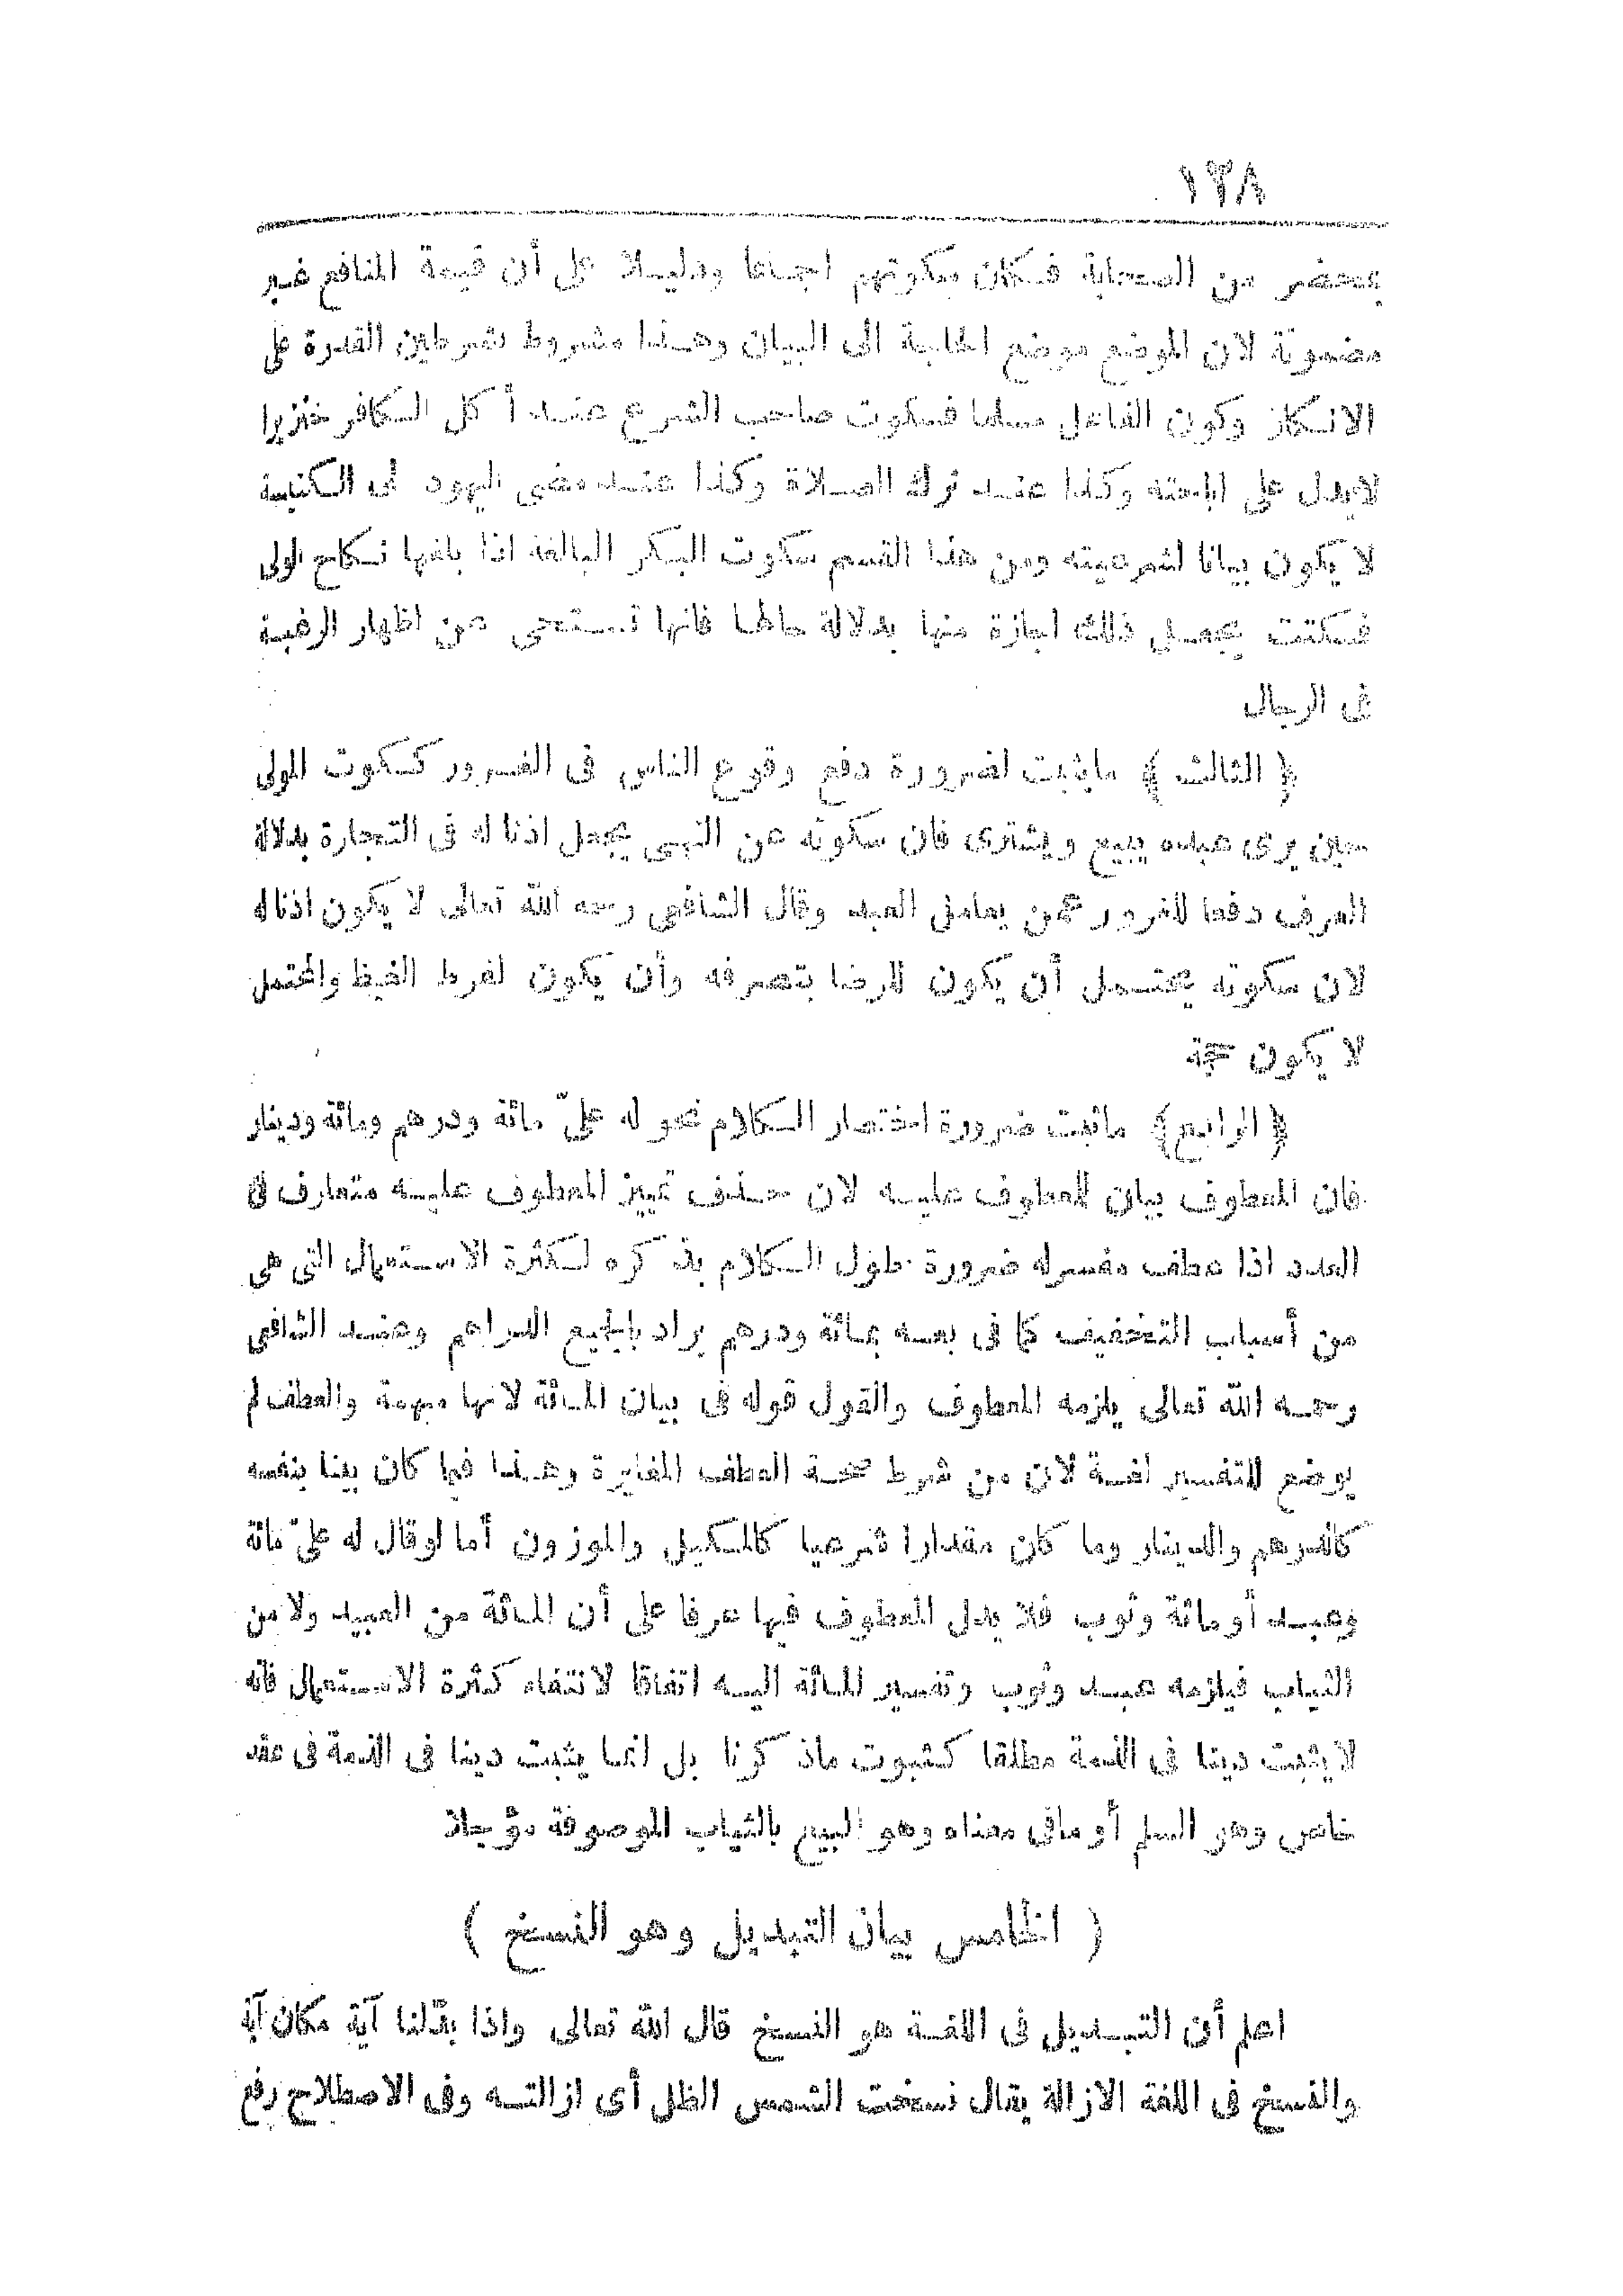 ١٣٨
بمحضر من الصحابة فكان سكوتهم اجماعا ودليلا على أن قيمة المنافع غير
مضمونة لان الموضع موضع الحاجة الى البيان وهذا مشروط بشرطين القدرة على
الانكار وكون الفاعل مسلما فسكوت صاحب الشرع عند أكل الكافر خنزيرا
لايدل على اباحته وكذا عند ترك الصلاة وكذا عند مضى اليهود الى الكنيسة
لا يكون بيانا لشرعيته ومن هذا القسم سكوت البكر البالغة اذا بلغها نكاح الولى
فسكتت يجعل ذلك اجازة منها بدلالة حالها فانها تستحى عن اظهار الرغبة
فى الرجال
﴿ الثالث ﴾ مايثبت لضرورة دفع وقوع الناس فى الغرور كسكوت المولى
حين يرى عبده يبيع ويشترى فان سكوته عن النهى يجعل اذنا له فى التجارة بدلالة
العرف دفعا للغرور عمن يعامل العبد وقال الشافعى رحمه الله تعالى لا يكون اذنا له
لان سكوته يحتمل أن يكون للرضا بتصرفه وأن يكون لفرط الغيظ والمحتمل
لا يكون حجة
﴿ الرابع ﴾ ماثبت ضرورة اختصار الكلام نحو له علىّ مائة ودرهم ومائة ودينار
فان المعطوف بيان للمعطوف عليه لان حذف تمييز المعطوف عليه متعارف فى
العدد اذا عطف مفسر له ضرورة طول الكلام بذكره لكثرة الاستعمال التى هى
من أسباب التخفيف كما فى بعه بمائة ودرهم يراد بالجميع الدراهم وعند الشافعى
رحمه الله تعالى يلزمه المعطوف والقول قوله فى بيان المائة لانها مبهمة والعطف لم
يوضع للتفسير لغة لان من شرط صحة العطف المغايرة وهذا فيما كان بينا بنفسه
كالدرهم والدينار وما كان مقدارا شرعيا كالمكيل والموزون أما لوقال له علىّ مائة
وعبد أو مائة وثوب فلا يدل المعطوف فيها عرفا على أن المائة من العبيد ولا من
الثياب فيلزمه عبد وثوب وتفسير المائة اليه اتفاقا لانتفاء كثرة الاستعمال فانه
لايثبت دينا فى الذمة مطلقا كثبوت ماذكرنا بل انما يثبت دينا فى الذمة فى عقد
خاص وهو السلم أو مافى معناه وهو البيع بالثياب الموصوفة مؤجلا
( الخامس بيان التبديل وهو النسخ )
اعلم أن التبديل فى اللغة هو النسخ قال الله تعالى واذا بدّلنا آية مكان آية
والنسخ فى اللغة الازالة يقال نسخت الشمس الظل أى ازالته وفى الاصطلاح رفع